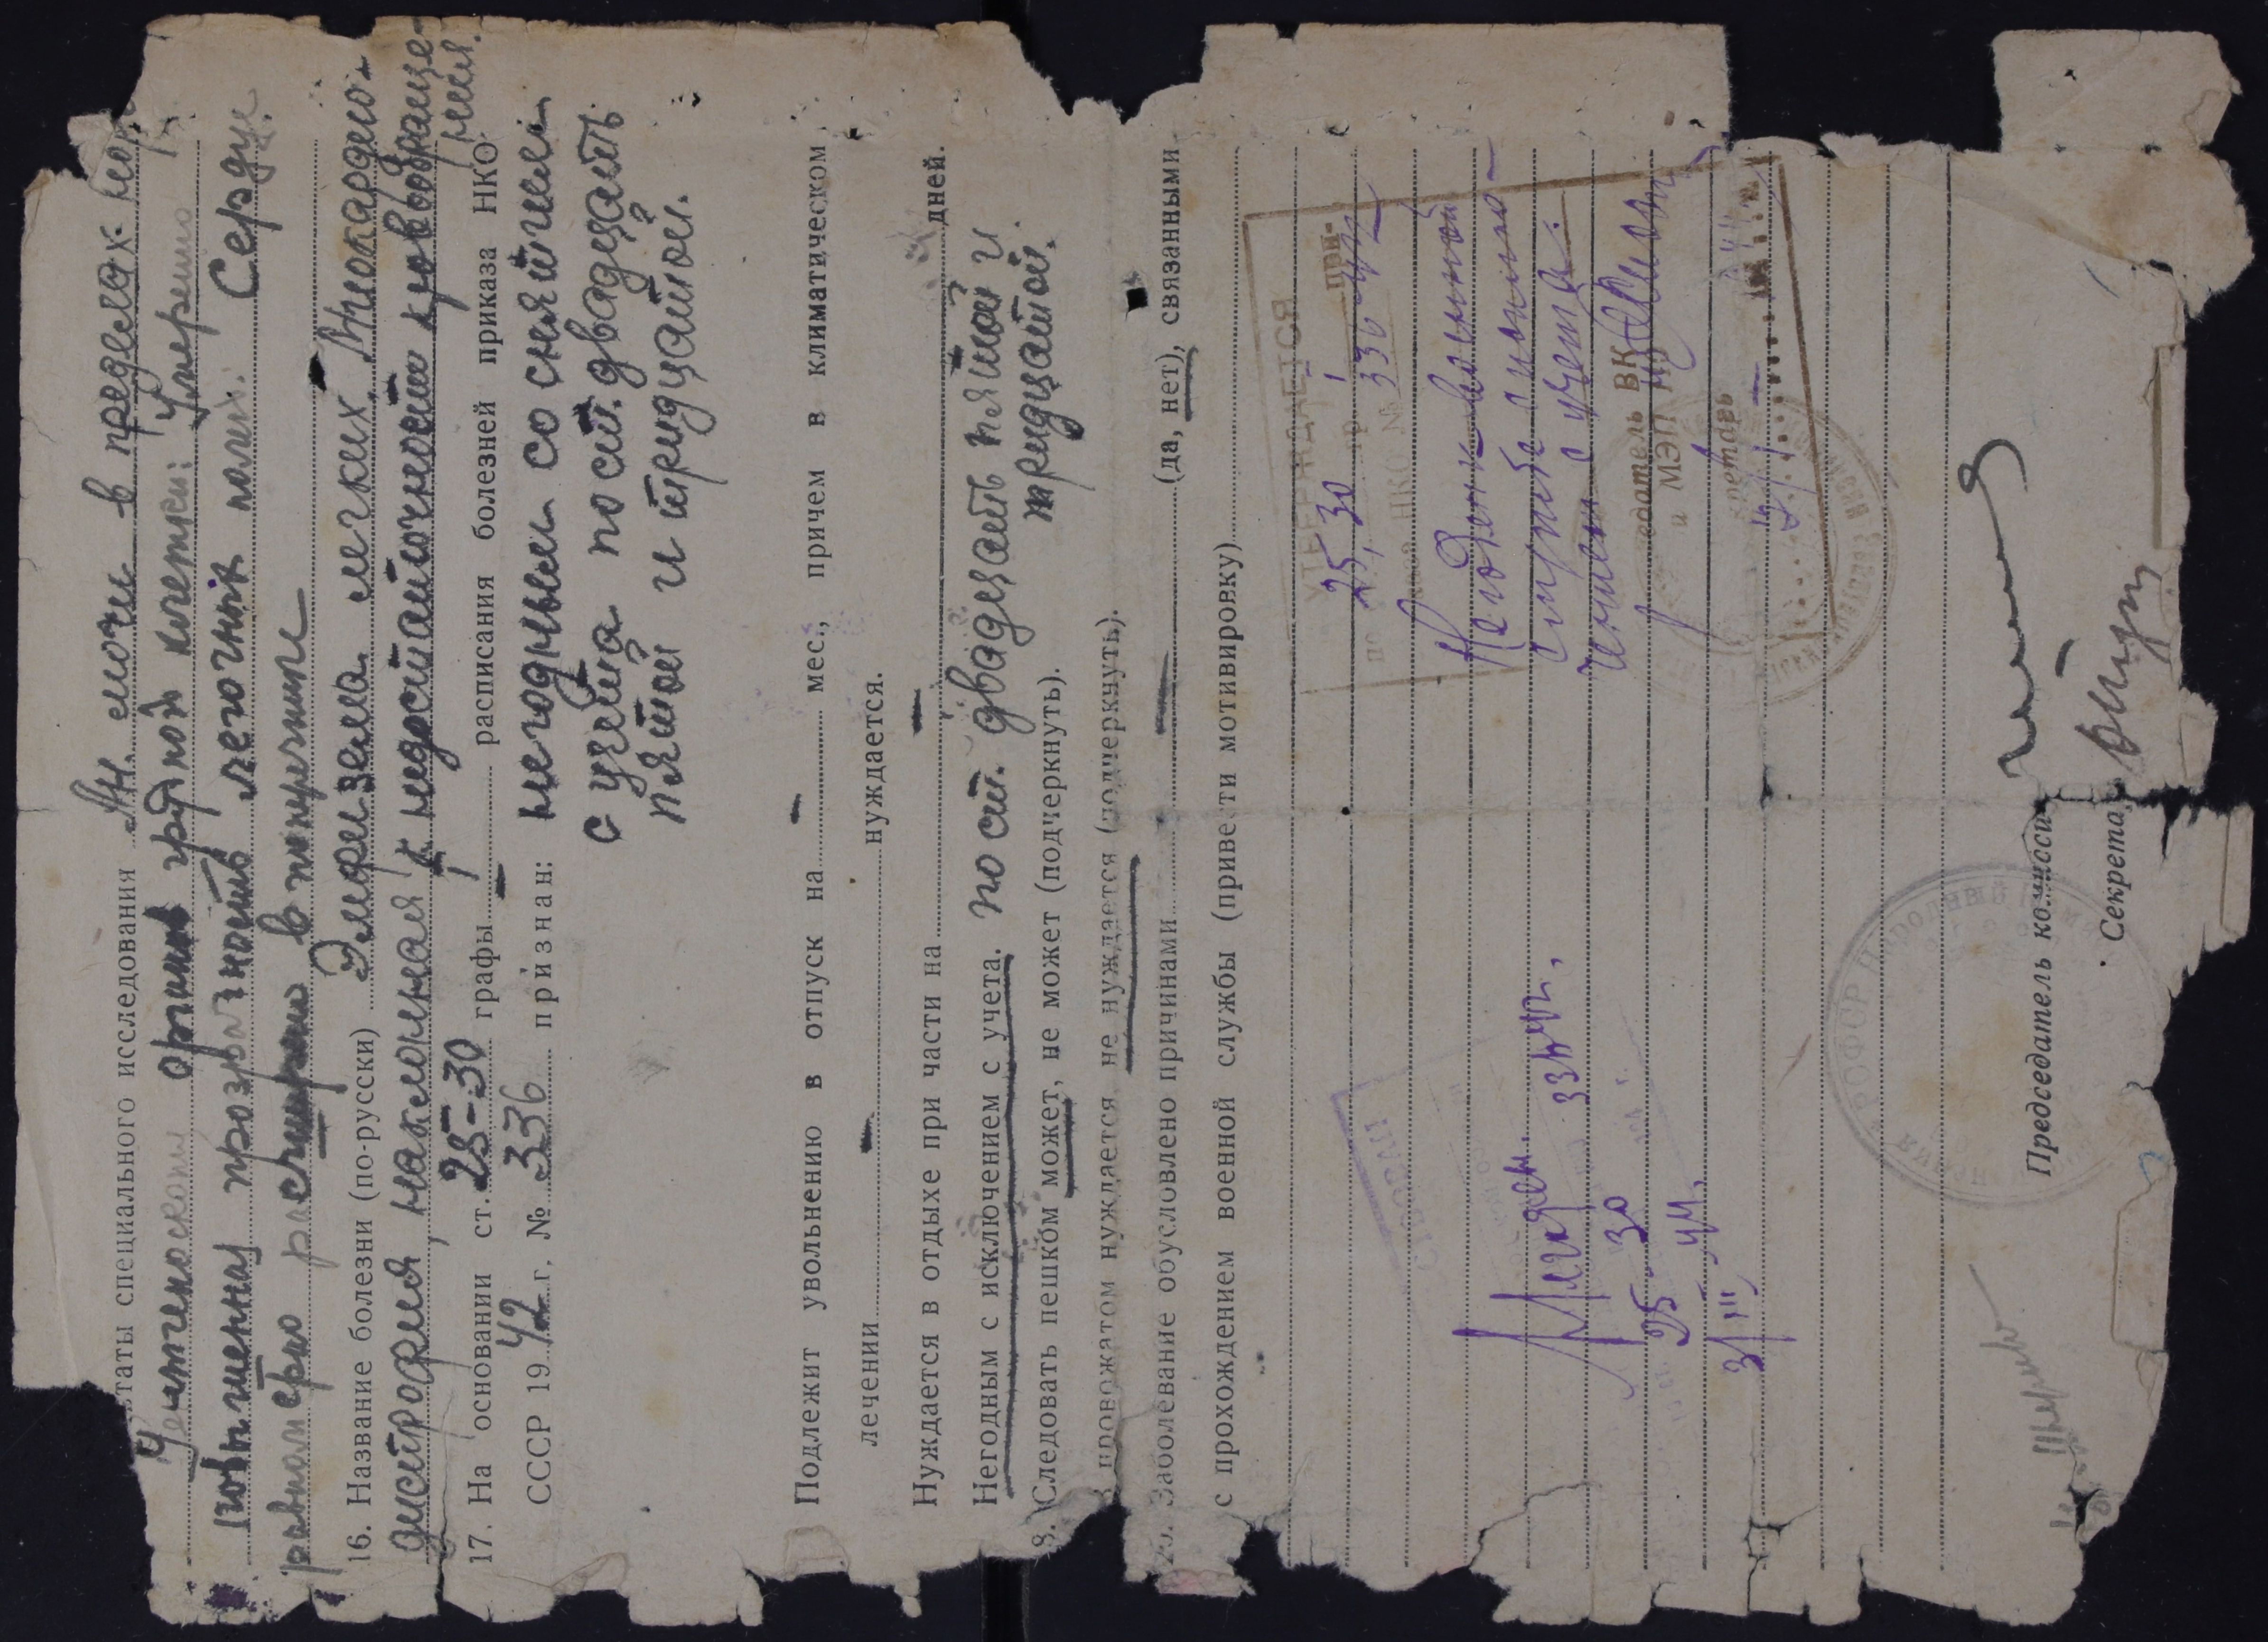 таты специального исследования Ан. мочи в пределах нор
органов грудной клетки: Умеренно
повышенная прозрачность легочных полей. Сердце
равномерно расширено в поперечнике
16. Название болезни (по-русски) Эмфизема легких. Миокардио-
дистрофия, наклонная к недостаточности кровообраще-
ния.
17. На основании ст. 25-30 графы — расписания болезней приказа НКО
СССР 1942 г. № 336 признан: негодным со снятием
с учета по ст. двадцать
пятой и тридцатой.
Подлежит увольнению в отпуск на — мес., причем в климатическом
лечении — нуждается.
Нуждается в отдыхе при части на — дней.
Негодным с исключением с учета. по ст. двадцать пятой и
тридцатой.
8. Следовать пешком может, не может (подчеркнуть).
В провожатом нуждается, не нуждается (подчеркнуть).
20. Заболевание обусловлено причинами — (да, нет), связанными
с прохождением военной службы (привести мотивировку)
УТВЕРЖДАЕТСЯ
по ст. 25, 30 гр. 1 при-
каза НКО № 336 42
Негоден к военной
службе с исклю-
чением с учета.
седатель ВК
и МЭП
кретарь
25 - 30
3/III 44.
Председатель комисси
Секрета